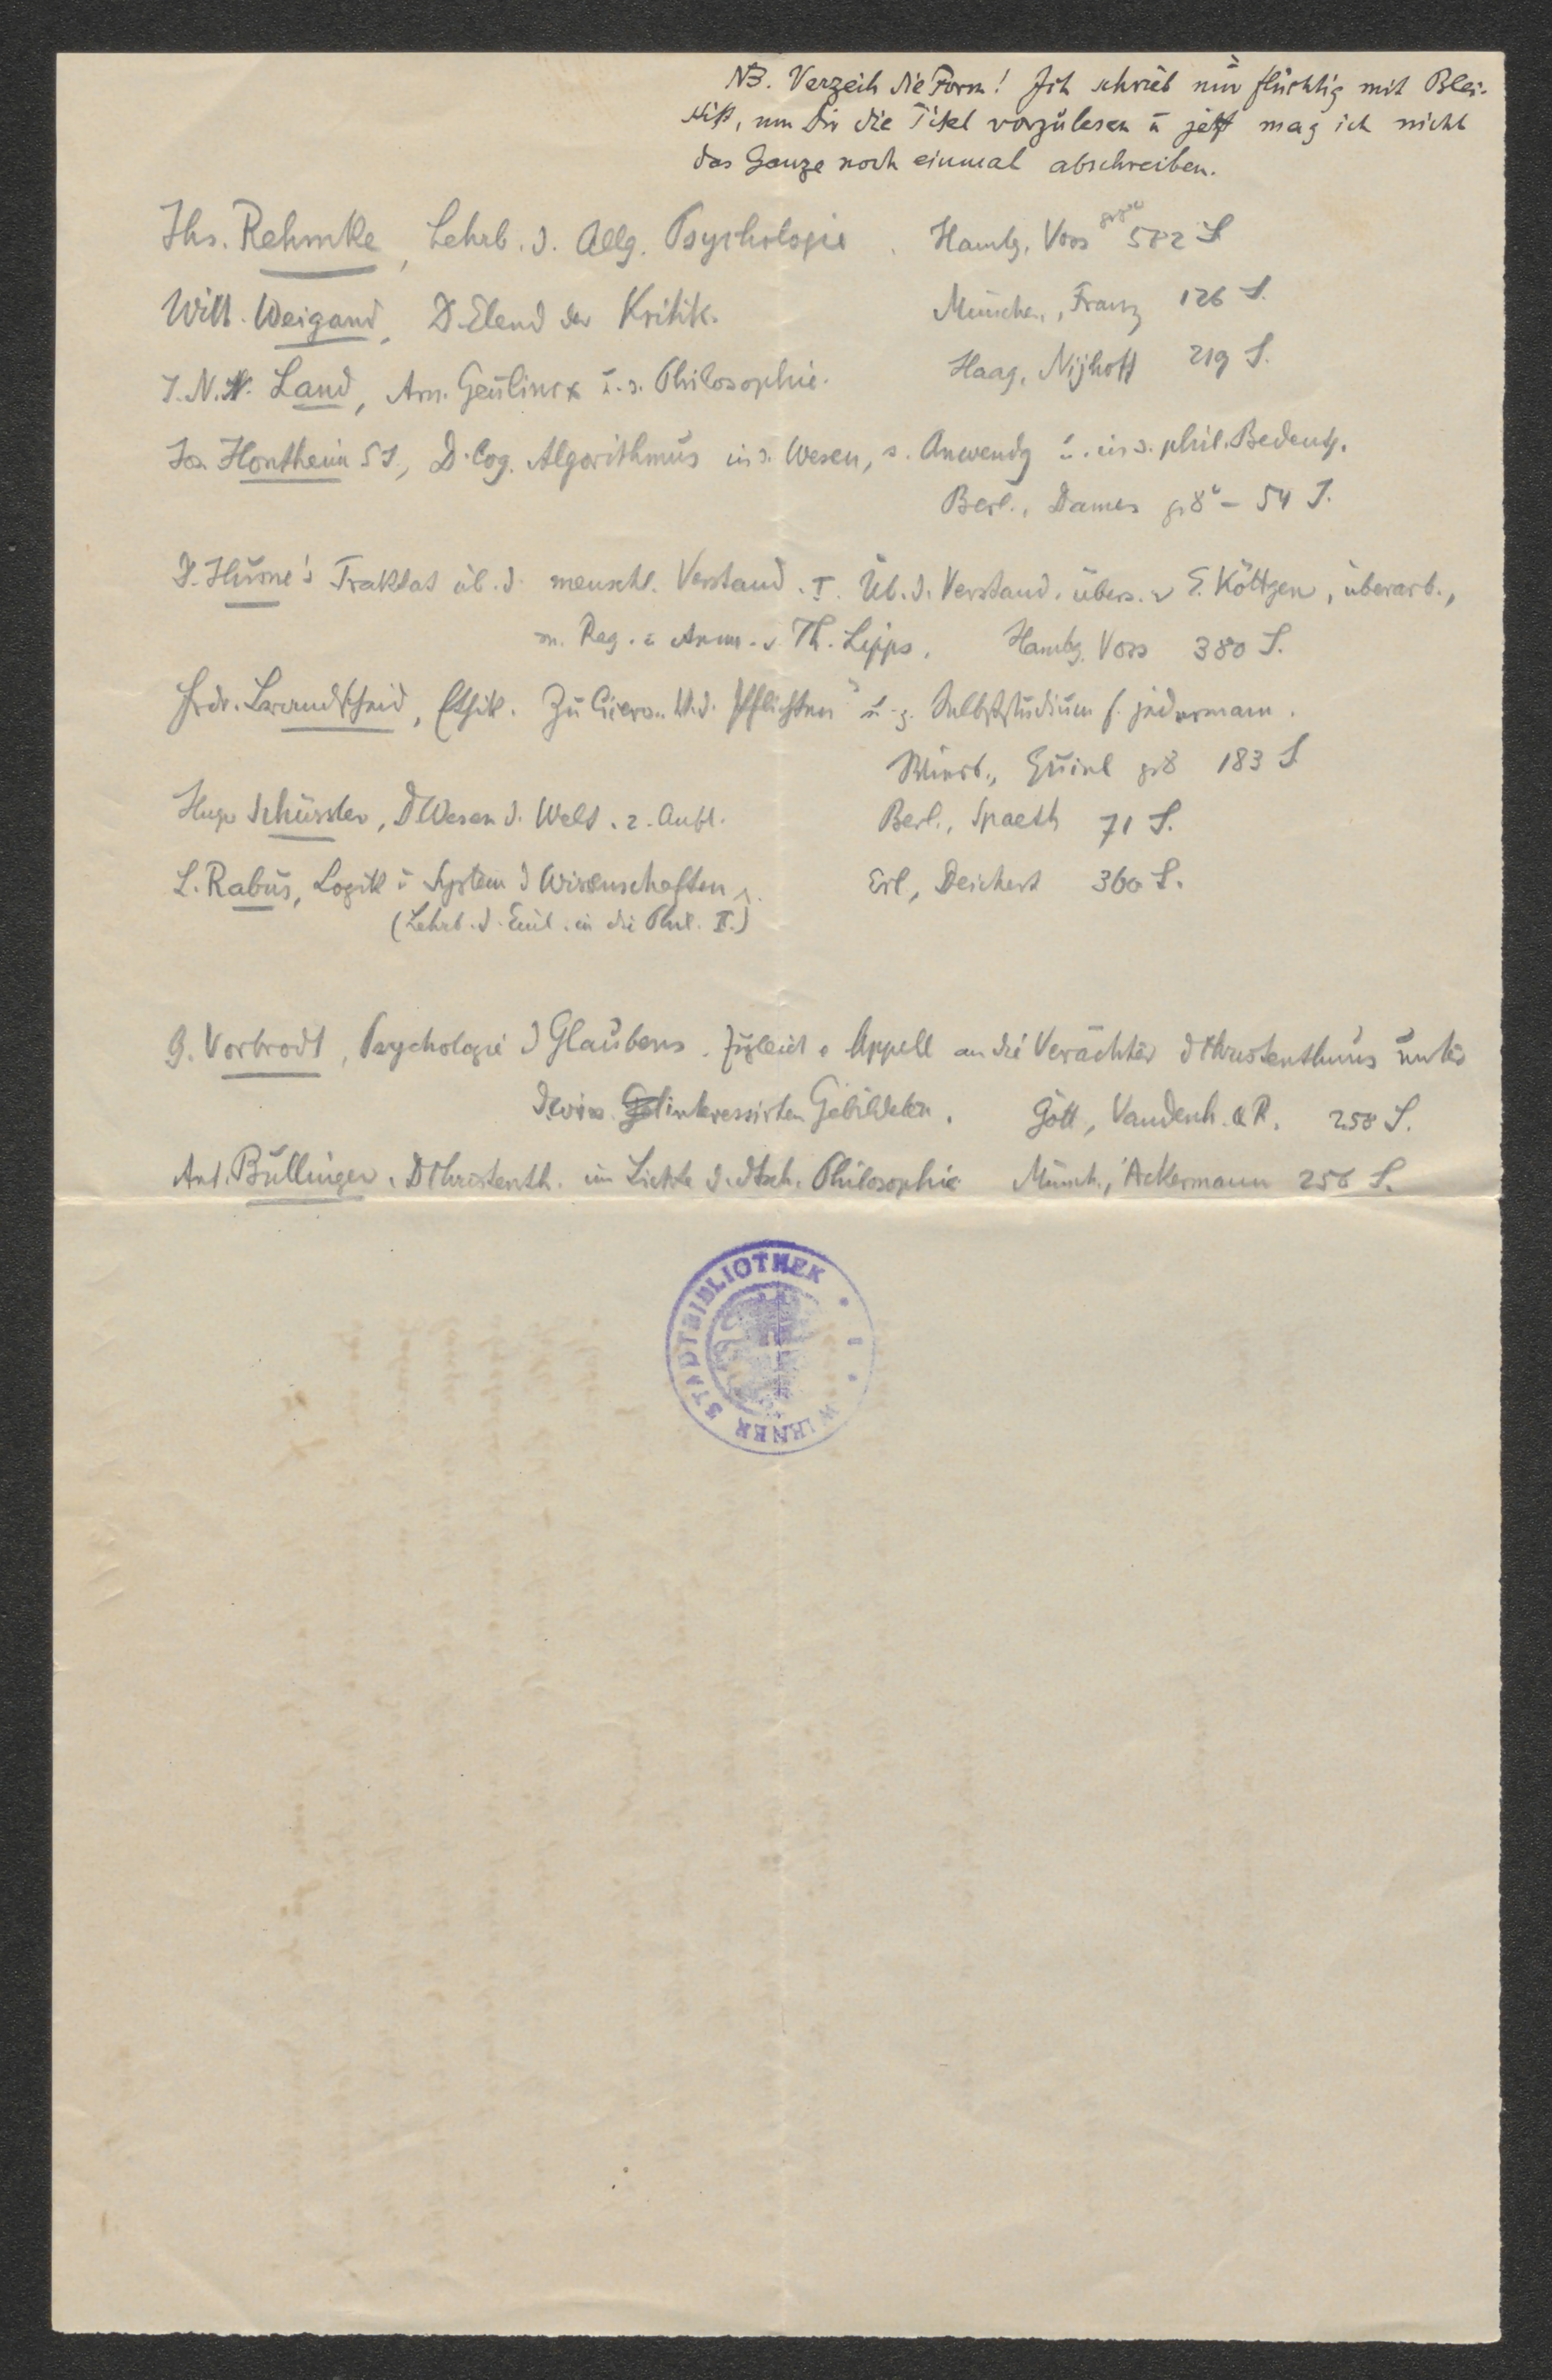 NB. Verzeih die Form! Ich schrieb nur flüchtig mit Blei-
stift, um Dir die Titel vorzulesen u jetzt mag ich nicht
das Ganze noch einmal abschreiben.
Jhs. Rehmke, Lehrb. d. Allg. Psychologie. Hambg. Voss gr 8° 582 S
Wilh. Weigand, D. Elend der Kritik. München, Franz 126 S.
J.N.N. Land, Arn. Geulincx u. s. Philosophie. Haag, Nijhoff 219 S.
Jos. Hontheim SJ., D. log. Algorithmus in s. Wesen, s. Anwendg u. in s. phil. Bedeutg.
Berl., Dames gr 8° – 54 S.
D. Hume's Traktat üb. d. menschl. Verstand. I. Üb. d. Verstand. übers. v E. Köttgen, überarb.,
m. Reg. u Anm. v Th. Lipps. Hambg. Voss 380 S.
Frdr. Brandscheid, Ethik. Zu Cicero „V. d. Pflichten" u. z. Selbststudium f. jedermann.
Wiesb., Quiel gr 8 183 S
Hugo Schüssler, D Wesen d. Welt. 2. Aufl. Berl., Spaeth 71 S.
L. Rabus, Logik u System d Wissenschaften. Erl, Deichert 360 S.
(Lehrb. d. Einl. in die Phil. II.)
G. Vorbrodt, Psychologie d Glaubens. Zugleich e Appell an die Verächter d Christenthums unter
d. wiss. interessirten Gebildeten. Gött, Vandenh. & R. 258 S.
Ant. Bullinger. D Christenth. im Lichte d. dtsch. Philosophie Münch., Ackermann 256 S.
WIENER STADTBIBLIOTHEK